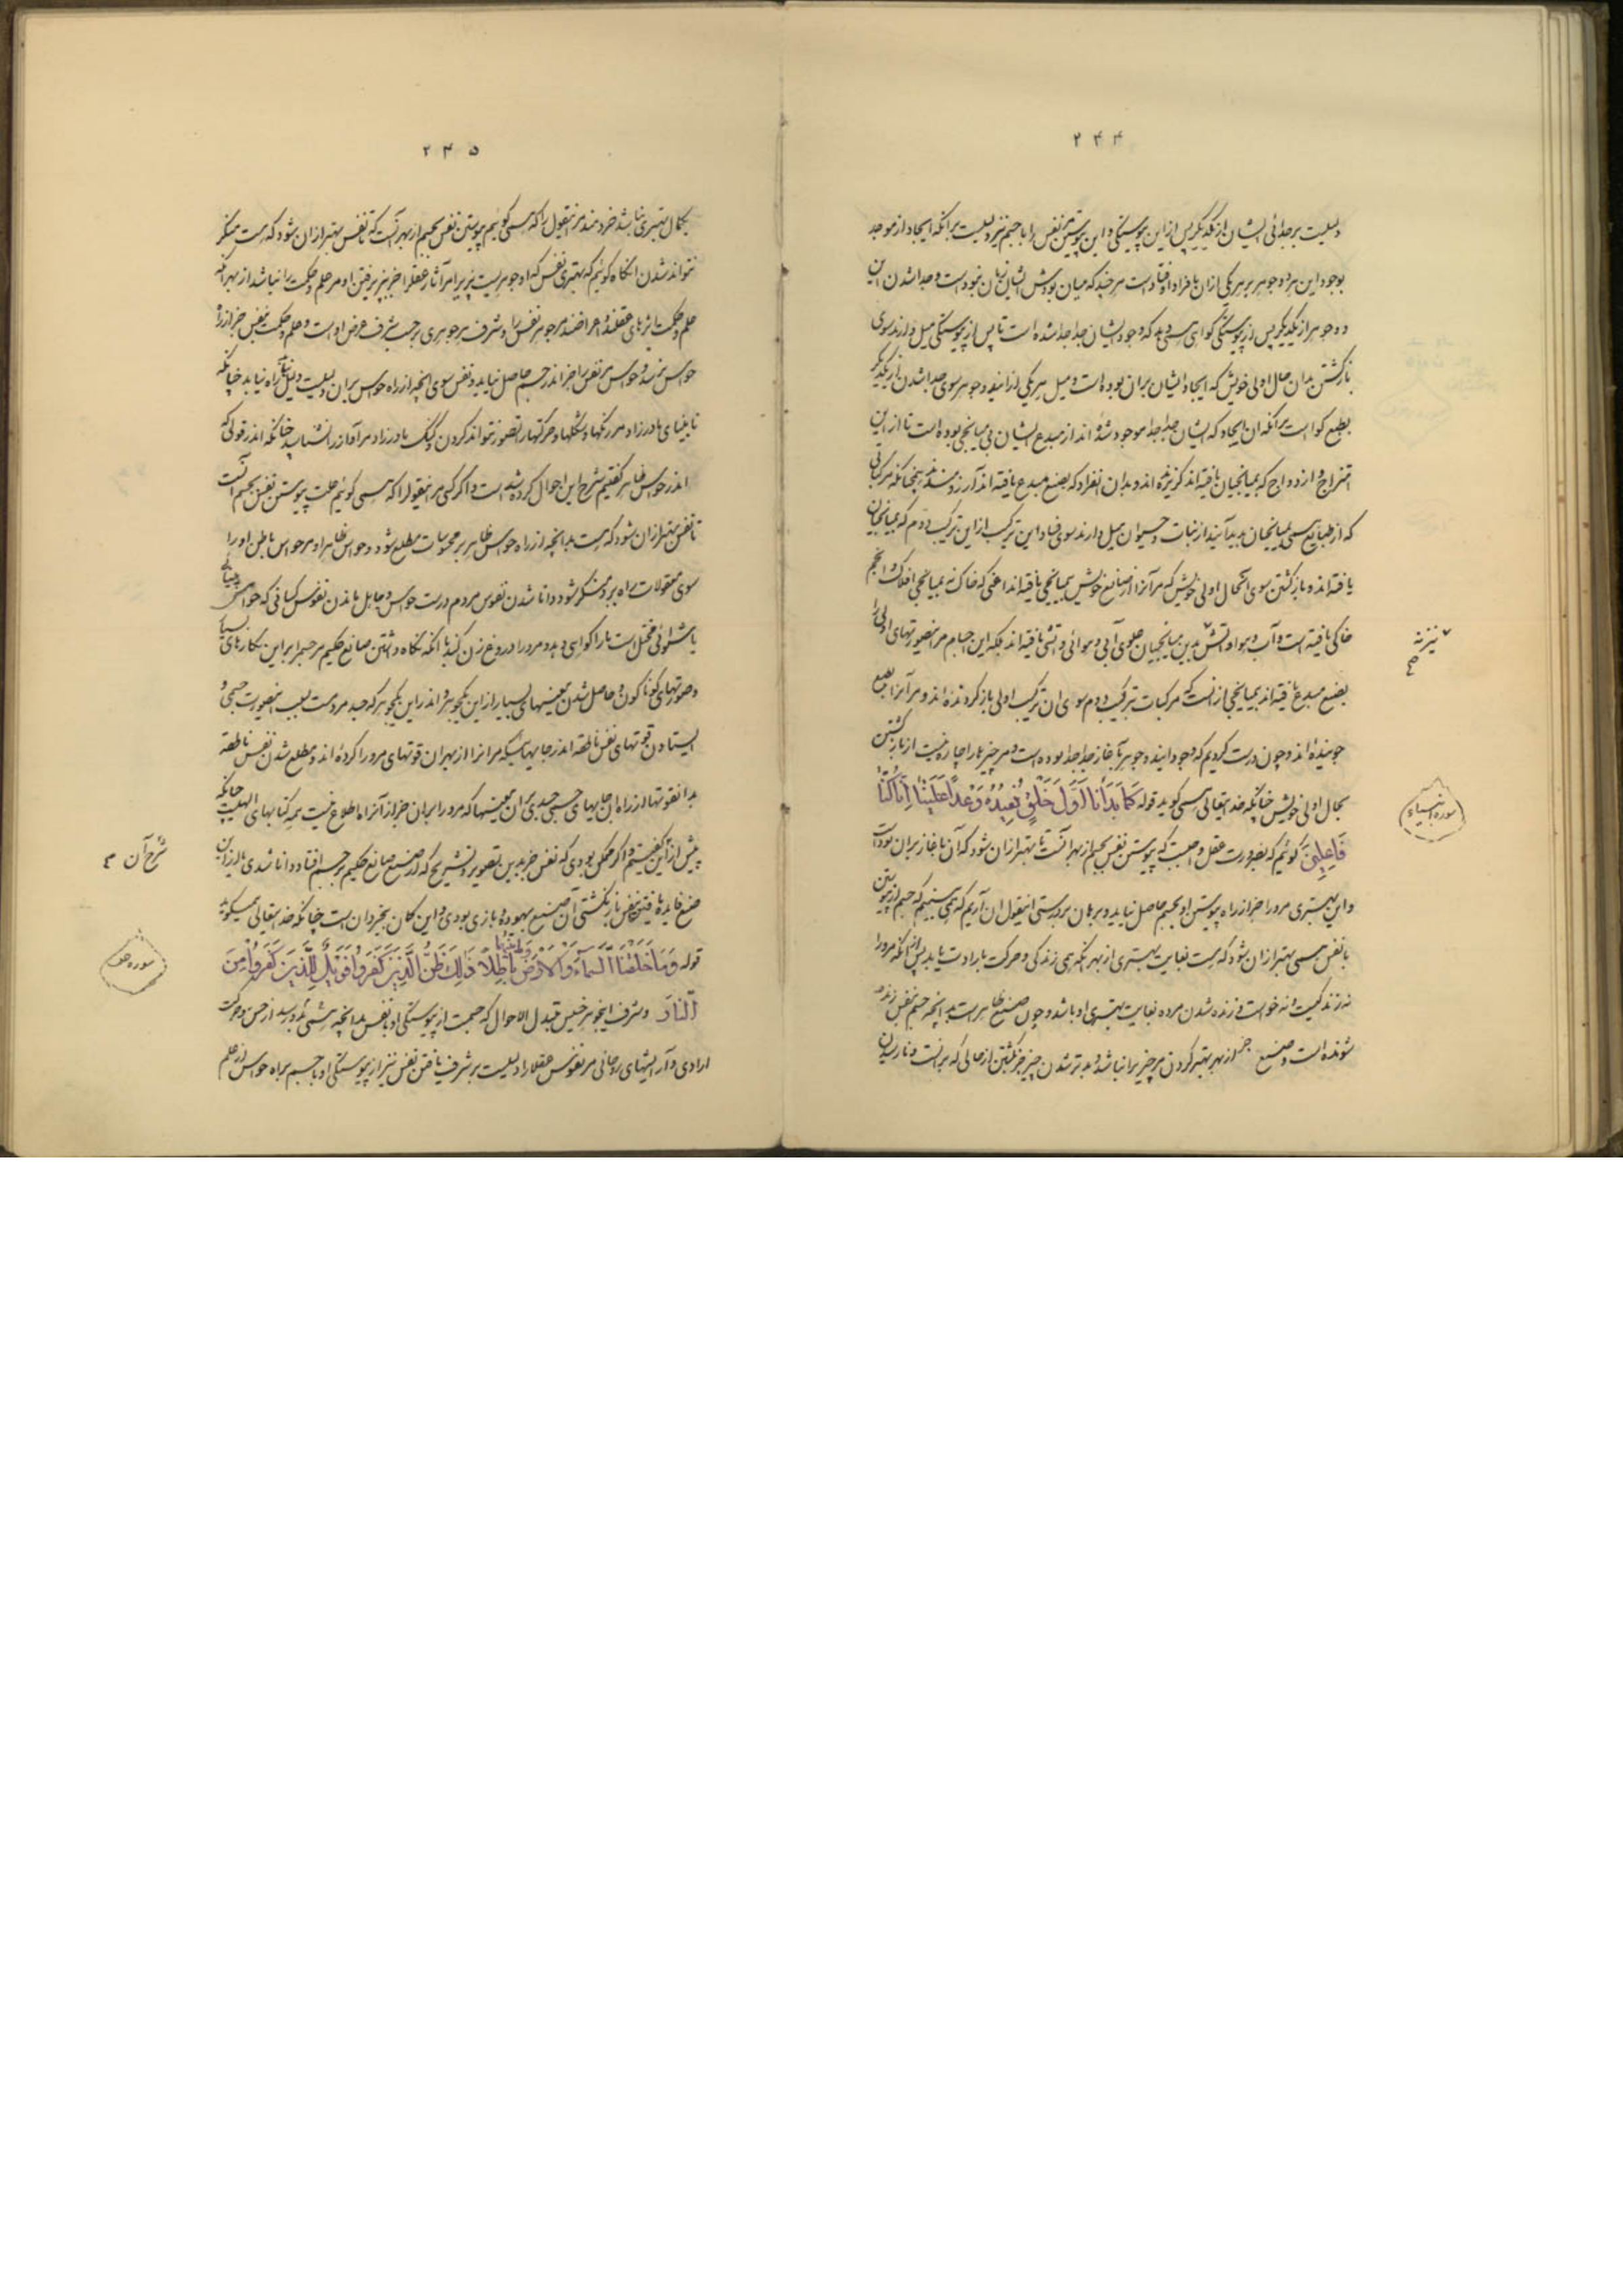 ۲۴۴
دلیلست بر جدائی ایشان از یکدیگر پس از این پیوستگی و این پیوستن نفس را با جسم نیز دلیلست بر آنکه ایجاد از موجد
بوجود این هر دو جوهر بر هر یکی ازان بانفراد اوفتاده است هر چند که میان بودش ایشان زمان نبوده است و جدا شدن این
دو جوهر از یکدیگر پس از پیوستگی گواهی همی دهد که وجود ایشان جدا جدا شده است تا پس از پیوستگی میل دارند سوی
بازگشتن بدان حال اولی خویش که ایجاد ایشان بران بوده است و میل هر یکی از این دو جوهر سوی جدا شدن از یکدیگر
بطبع گواست بر آنکه ان ایجاد که ایشان جدا جدا موجود شده اند از مبدع ایشان بی میانجی بوده است تا از این
امتزاج و ازدواج که بمیانجیان یافته اند گریزنده اند و بدان انفراد که بصنع مبدع یافته اند آرزومندند همچنانکه هر ترکیبی
که از طبایع همی بمیانجیان پدید آیند از نبات و حیوان میل دارند سوی فساد این ترکیب از این ترکیب دوم که بمیانجیان
یافته اند و بازگشتن سوی آنحال اولی خویش که مر آنرا از صانع خویش بمیانجی یافته اند اعنی که خاک نه بمیانجی افلاک و انجم
خاکی یافته است و آب و هوا و آتش بدین میانجیان علوی آبی و هوائی و آتشی یافته اند بلکه این اجسام مر اینصورتهای اولی را
بصنع مبدع یافته اند بمیانجی از آنست که مر کبات بترکیب دوم سوی ان ترکیب اولی بازگردنده اند و مر آنرا بطبع
جوینده اند و چون درست کردیم که وجود ایندو جوهر بآغاز جدا جدا بوده است و مر چیزها را چاره نیست از بازگشتن
بحال اولی خویش چنانکه خدایتعالی همی گوید قوله كَمَا بَدَأْنَا أَوَّلَ خَلْقٍ نُعِيدُهُ وَعْدًا عَلَيْنَا إِنَّا كُنَّا
فَاعِلِينَ گوئیم که بضرورت عقل واجبست که پیوستن نفس بجسم از بهر آنست تا بهتر از ان شود که آن باغاز بران بوده است
و این بهتری مرو را جز از راه پیوستن او بجسم حاصل نیاید و برهان بر درستی اینقول ان آریم که همی بینیم که جسم از پیوستن
با نفس همی بهتر از ان شود که هست بغایت بهتری از بهر آنکه همی زندگی و حرکت بارادت یابد پس از آنکه مرورا
نه زندگیست و نه خواست و زنده شدن مرده بغایت بهتری او باشد و چون صنیع ظاهر است بدانچه جسم بنفس زنده
شونده است و صنیع جز از بهر بهتر کردن مر چیز را نباشد و بدتر شدن چیز جز گشتن از حالی که بر آنست و نارسیدن
نیز نه
سوره انبیاء
۲۴۵
بکمال بهتری نباشد خردمند مر اینقول را که همی گوئیم پیوستن نفس بجسم از بهر آنست که تا نفس بهتر از ان شود که هست منکر
نتواند شدن آنگاه گوئیم که بهتری نفس که او جوهریست پذیرا مر آثار عقل را جز بپذیرفتن او مر علم و حکمت را نباشد از بهر آنکه
علم و حکمت اثرهای عقلند و اعراضند مر جوهر نفس را و شرف هر جوهری بر حسب شرف عرض اوست و علم و حکمت بنفس جز از راه
حواس نرسد و حواس مر نفس را جز اندر جسم حاصل نیاید و نفس سوی آنچه از راه حواس بران دلیلست دلیل نتابد راه نیابد چنانکه
نابینای مادرزاد مر رنگها و شکلها و حرکتها را تصور نتواند کردن و گنگ مادرزاد مر آواز را نشناسد چنانکه اندر قولی که
اندر حواس ظاهر گفتیم شرح این احوال کرده شده است و اگر کسی مر اینقول را که همی گوئیم علت پیوستن نفس بجسم آنست
تا نفس بهتر از ان شود که هست بدانچه از راه حواس ظاهر بر محسوسات مطلع شود و حواس ظاهر او مر حواس باطن او را
سوی معقولات راه برد منکر شود دانا شدن نفوس مردم درست حواس و جاهل ماندن نفوس کسانی که حواس بینائی
یا شنوائی مختل است ما را گواهی دهد و مرو را دروغ زن کند با آنکه نگاه داشتن صانع حکیم مر جسم را بر این نگارهای بسیار
و صورتهای گوناگون و حاصل شدن معنیهای بسیار از این یکجوهر و اندر این یکجوهر که جسد مردمست بسبب اینصورت جسمی و
ایستادن قوتهای نفس ناطقه اندر جایهائیکه مر انرا از بهر ان قوتهای مرو را کرده اند و مطلع شدن نفس ناطقه
بدانقوتها از راه ان جایهای جسمی جسدی بر ان معنیها که مرو را بران جز از آنراه اطلاع نیست بر کتابهای الهیست چنانکه
پیش از این گفتیم و اگر ممکن بودی که نفس جز بدین تصویر و تشریح که از صنع صانع حکیم بر جسم افتاد دانا شدی یا از این
صنع فایده یافتن نفس باز نگشتی آن صنیع بیهوده و بازی بودی و این گمان بیخردان است چنانکه خدایتعالی همیگوید
قوله وَمَا خَلَقْنَا السَّمَاءَ وَالْأَرْضَ وَمَا بَيْنَهُمَا بَاطِلًا ذَلِكَ ظَنُّ الَّذِينَ كَفَرُوا فَوَيْلٌ لِلَّذِينَ كَفَرُوا مِنَ
النَّارِ و شرف اینجوهر خسیس متبدل الاحوال که جسمست از پیوستگی او با نفس بدانچه همی بدو رسد از حس و حرکت
ارادی و آرایشهای روحانی مر نفوس عقلا را دلیلست بر شرف یافتن نفس نیز از پیوستگی او با جسم براه حواس از علم
شرح آن
سوره ص